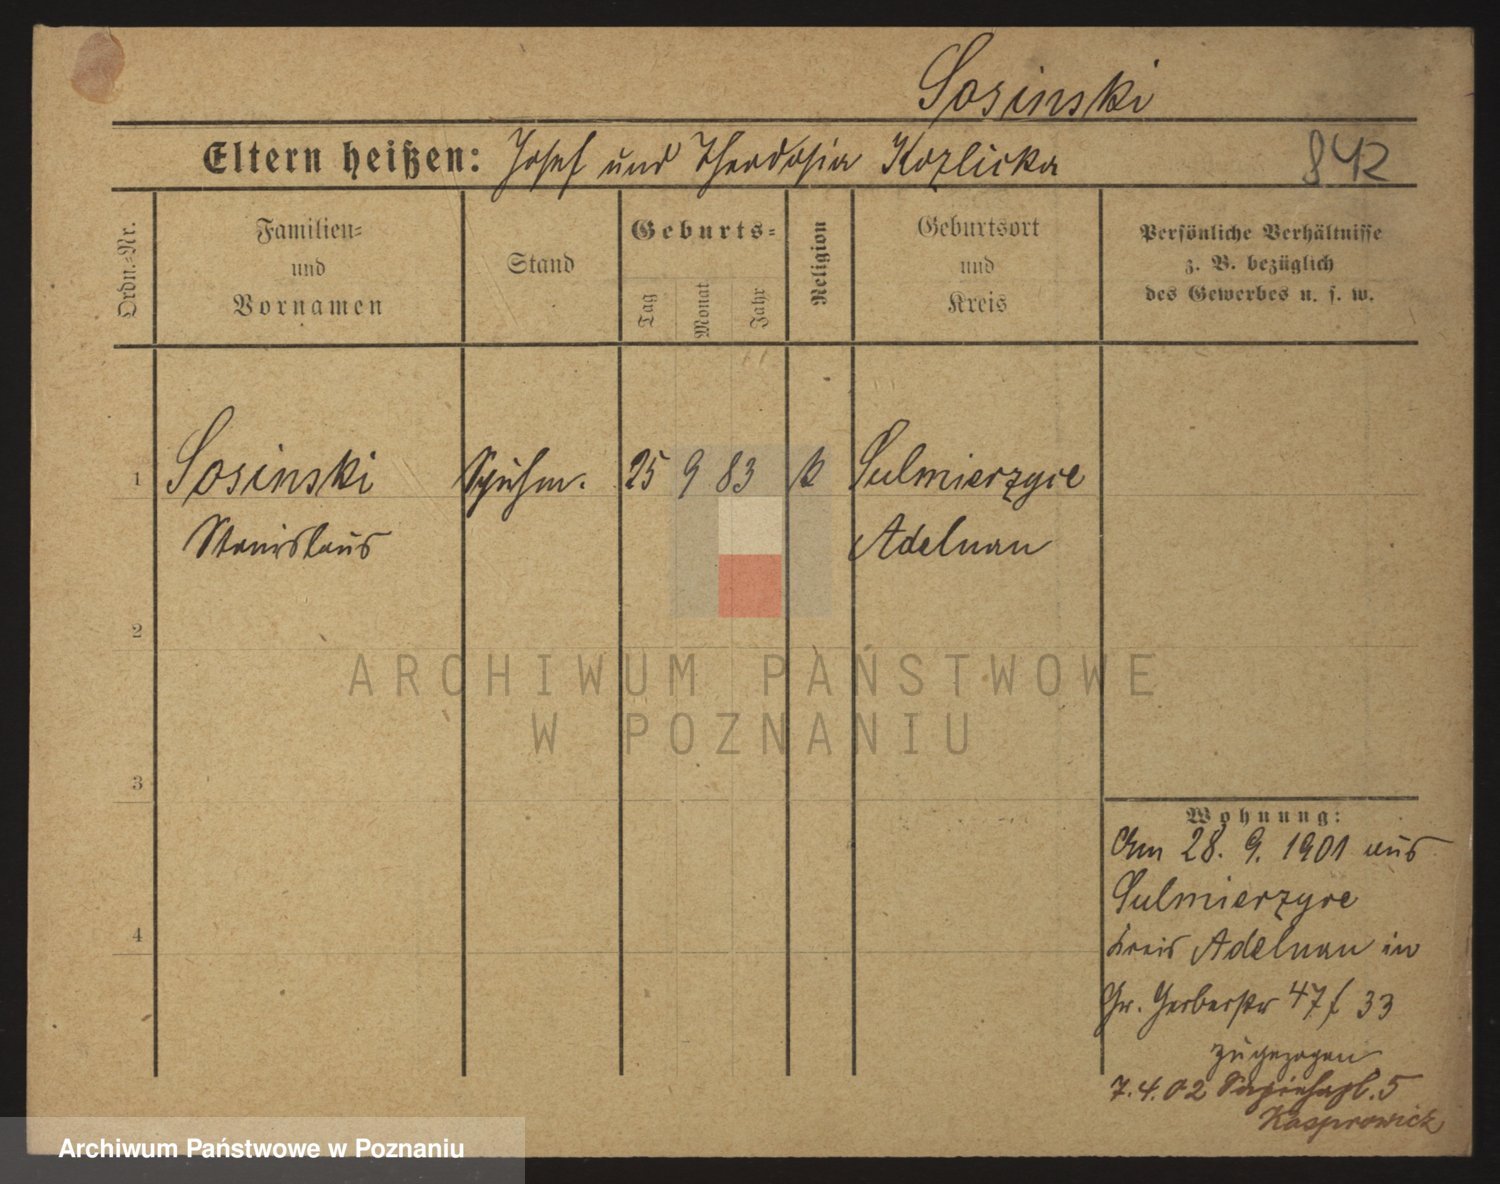 Sosinski
Eltern heißen: Josef und Theodosia Kozlicka
842
Ordn.-Nr.
Familien-
und
Vornamen
Stand
Geburts-
Tag
Monat
Jahr
Religion
Geburtsort
und
Kreis
Persönliche Verhältnisse
z. B. bezüglich
des Gewerbes u. s. w.
1 Sosinski Schuhm. 25 9 83 k Sulmierzyce
Stanislaus Adelnau
2
ARCHIWUM PAŃSTWOWE
W POZNANIU
3
Wohnung:
Am 28. 9. 1901 aus
Sulmierzyce
4
Kreis Adelnau in
Gr. Gerberstr 47 f 33
zugezogen
7.4.02 Sapiehapl. 5
Kasprowicz
Archiwum Państwowe w Poznaniu